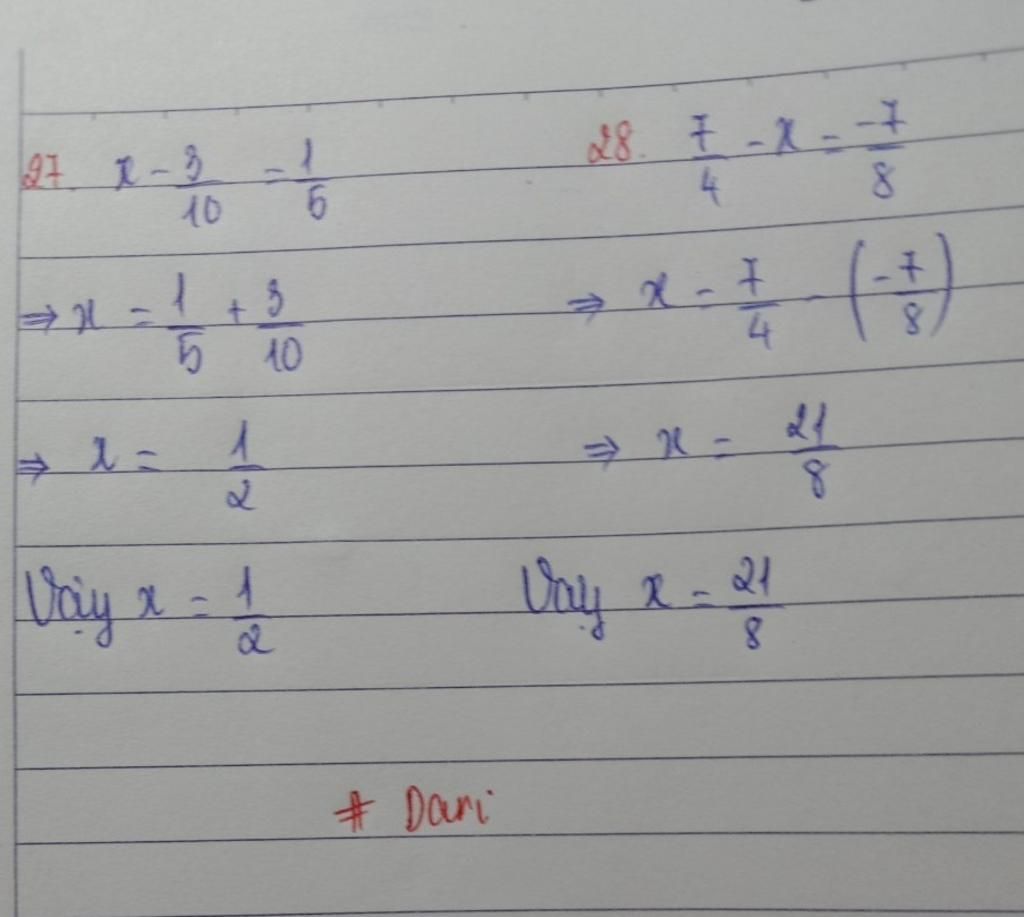 27. x - 3/10 = 1/5
⇒ x = 1/5 + 3/10
⇒ x = 1/2
Vậy x = 1/2
28. 7/4 - x = -7/8
⇒ x = 7/4 - (-7/8)
⇒ x = 21/8
Vậy x = 21/8
# Dari